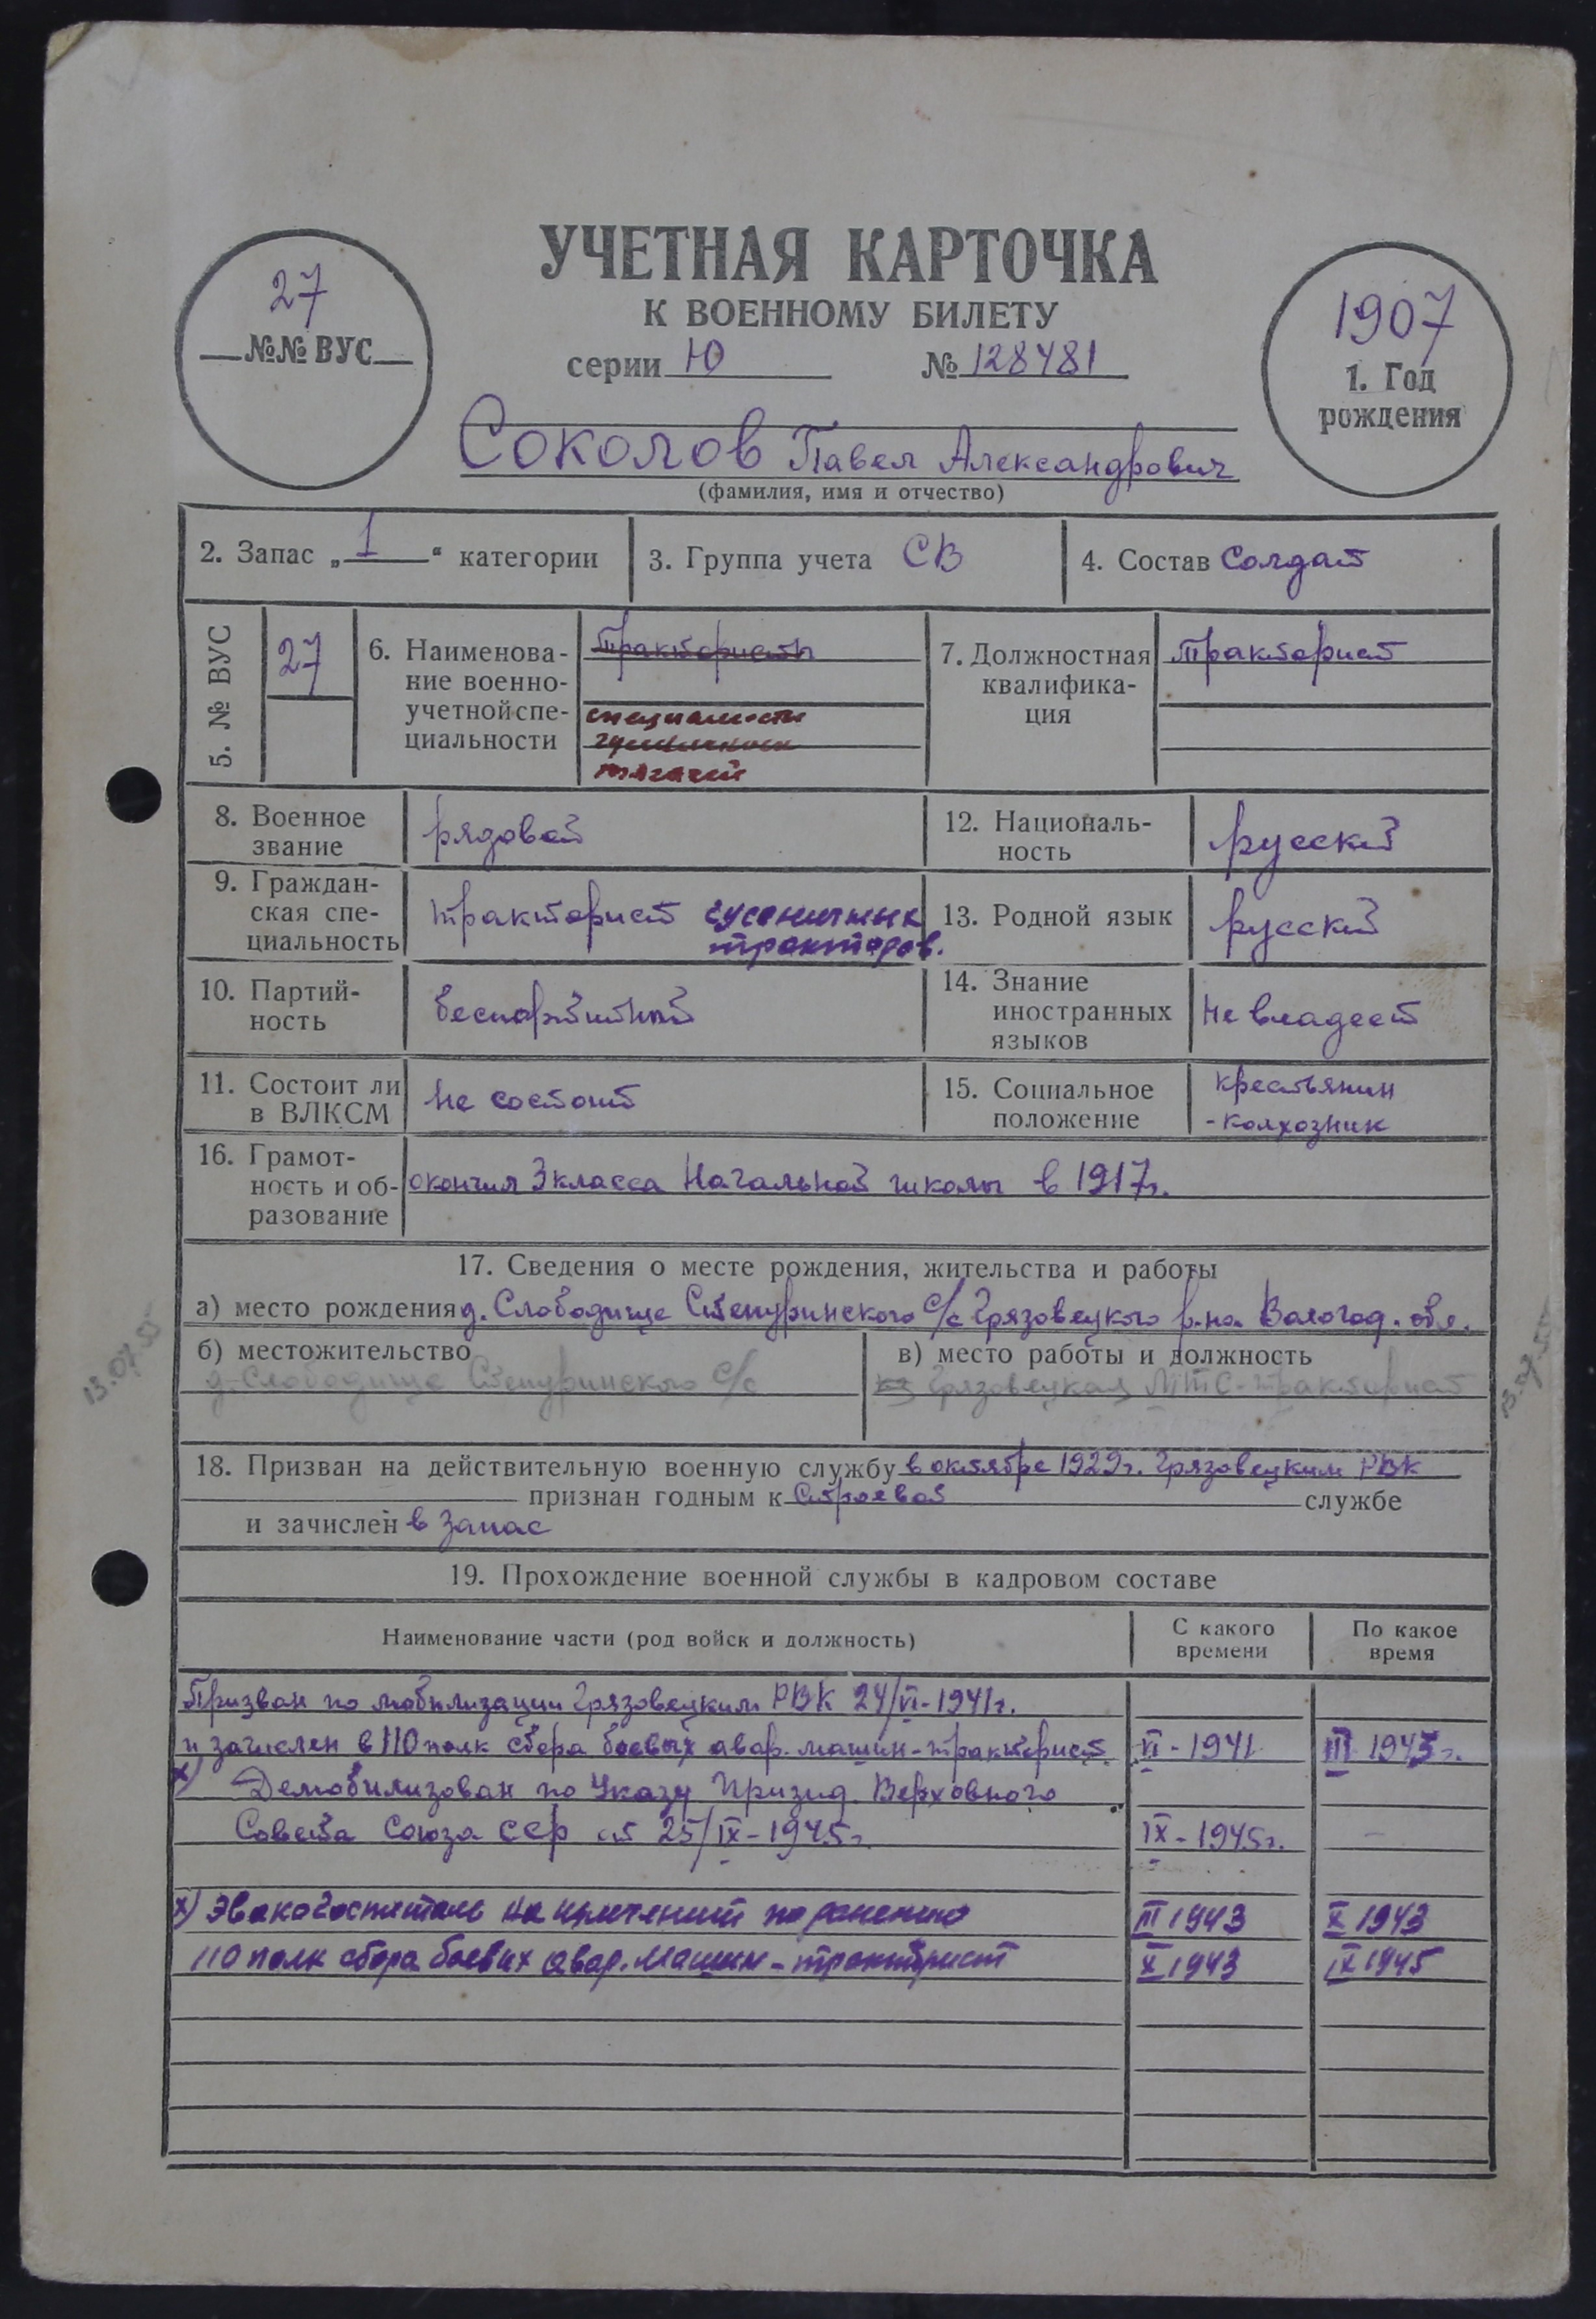 УЧЕТНАЯ КАРТОЧКА
К ВОЕННОМУ БИЛЕТУ
серии Ю № 128481
27
№№ ВУС
1907
1. Год
рождения
Соколов Павел Александрович
(фамилия, имя и отчество)
2. Запас „1" категории
3. Группа учета СВ
4. Состав Солдат
5. № ВУС
27
6. Наименова-
ние военно-
учетной спе-
циальности
Трактористы
специалисты
гусеничных
тягачей
7. Должностная
квалифика-
ция
Тракторист
8. Военное
звание
рядовой
12. Националь-
ность
русский
9. Граждан-
ская спе-
циальность
тракторист гусеничных
тракторов.
13. Родной язык
русский
10. Партий-
ность
беспартийный
14. Знание
иностранных
языков
Не владеет
11. Состоит ли
в ВЛКСМ
Не состоит
15. Социальное
положение
крестьянин
-колхозник
16. Грамот-
ность и об-
разование
окончил 3 класса Начальной школы в 1917г.
17. Сведения о месте рождения, жительства и работы
а) место рождения д. Слободище Степуринского с/с Грязовецкого р-на Вологод. обл.
б) местожительство
д. Слободище Степуринского с/с
в) место работы и должность
Грязовецкая МТС-тракторист
18. Призван на действительную военную службу в октябре 1929г. Грязовецким РВК
признан годным к Строевой службе
и зачислен в запас
19. Прохождение военной службы в кадровом составе
Наименование части (род войск и должность)
С какого
времени
По какое
время
Призван по мобилизации Грязовецким РВК 24/VI-1941г.
и зачислен в 110 полк сбора боевых авар. машин-тракторист VI-1941 III 1943г.
х) Демобилизован по Указу Призид. Верховного
Совета Союза ССР от 25/IX-1945г. IX-1945г. -
х) Эвакогоспиталь на излечении по ранению III 1943 X 1943
110 полк сбора боевых авар. машин-тракторист X 1943 IX 1945